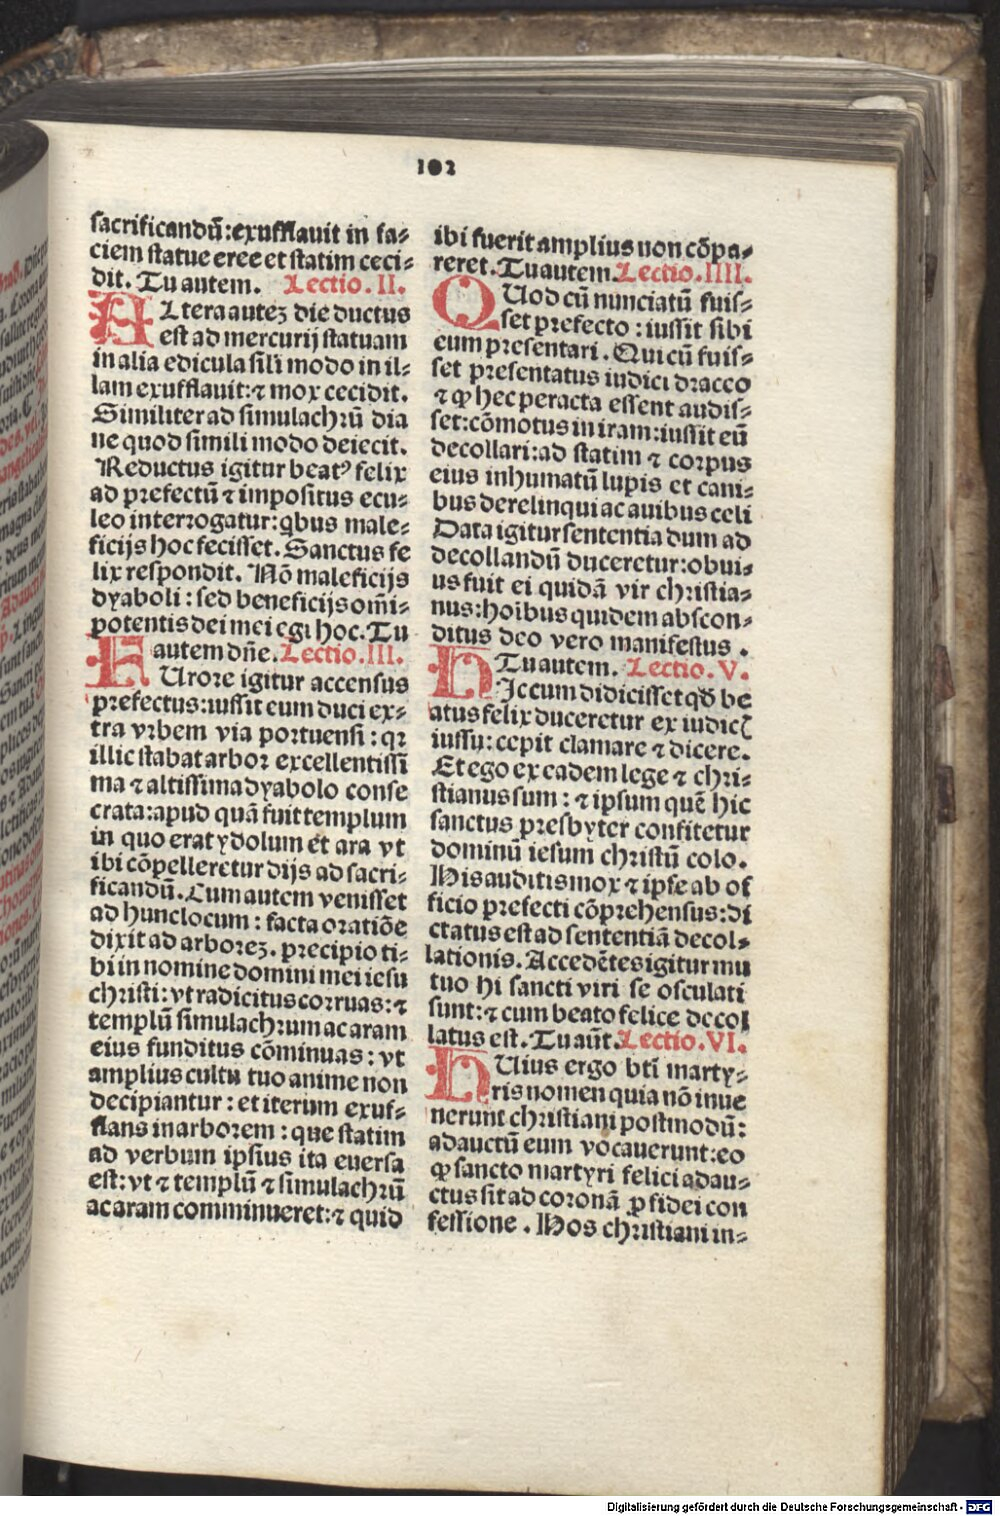 102
sacrificandū:exufflauit in fa⸗
ciem statue eree et statim ceci⸗
dit. Tu autem. Lectio.II.
ALtera auteꝫ die ductus
est ad mercurij statuam
in alia edicula sili modo in il⸗
lam exufflauit:⁊ mox cecidit.
Similiter ad simulachrū dia
ne quod simili modo deiecit.
Reductus igitur beatꝰ felix
ad prefectū ⁊ impositus ecu⸗
leo interrogatur:qbus male⸗
ficijs hoc fecisset. Sanctus fe
lix respondit. Nō maleficijs
dyaboli : sed beneficijs om̄i⸗
potentis dei mei egi hoc. Tu
autem dn̄e. Lectio.III.
FUrore igitur accensus
prefectus:iussit eum duci ex⸗
tra vrbem via portuensi : qꝛ
illic stabat arbor excellentissi
ma ⁊ altissima dyabolo conse
crata:apud quā fuit templum
in quo erat ydolum et ara vt
ibi cōpelleretur dijs ad sacri⸗
ficandū. Cum autem venisset
ad hunc locum : facta oratiōe
dixit ad arboreꝫ. precipio ti⸗
bi in nomine domini mei iesu
christi : vt radicitus corruas:⁊
templū simulachrum ac aram
eius funditus cōminuas : vt
amplius cultu tuo anime non
decipiantur : et iterum exuf⸗
flans in arborem : que statim
ad verbum ipsius ita euersa
est:vt ⁊ templū ⁊ simulachrū
ac aram comminueret:⁊ quid
ibi fuerit amplius non cōpa⸗
reret. Tu autem. Lectio.IIII.
QUod cū nunciatū fuis⸗
set prefecto : iussit sibi
eum presentari . Qui cū fuis⸗
set presentatus iudici dracco
⁊ ꝙ hec peracta essent audis⸗
set:cōmotus in iram:iussit eū
decollari:ad statim ⁊ corpus
eius inhumatū lupis et cani⸗
bus derelinqui ac auibus celi
Data igitur sententia dum ad
decollandū duceretur:obui⸗
us fuit ei quidā vir christia⸗
nus:hoībus quidem abscon⸗
ditus deo vero manifestus .
Tu autem. Lectio.V.
HIc cum didicisset qd̄ be
atus felix duceretur ex iudicꝭ
iussu: cepit clamare ⁊ dicere.
Et ego ex eadem lege ⁊ chri⸗
stianus sum : ⁊ ipsum quē hic
sanctus presbyter confitetur
dominū iesum christū colo.
His auditis mox ⁊ ipse ab of
ficio prefecti cōprehensus:di
ctatus est ad sententiā decol⸗
lationis. Accedētes igitur mu
tuo hi sancti viri se osculati
sunt:⁊ cum beato felice decol
latus est. Tu aūt. Lectio.VI.
HUius ergo bti marty⸗
ris nomen quia nō inue
nerunt christiani postmodū:
adauctū eum vocauerunt:eo
ꝙ sancto martyri felici adau⸗
ctus sit ad coronā ꝓ fidei con
fessione . Hos christiani in⸗
Digitalisierung gefördert durch die Deutsche Forschungsgemeinschaft - DFG